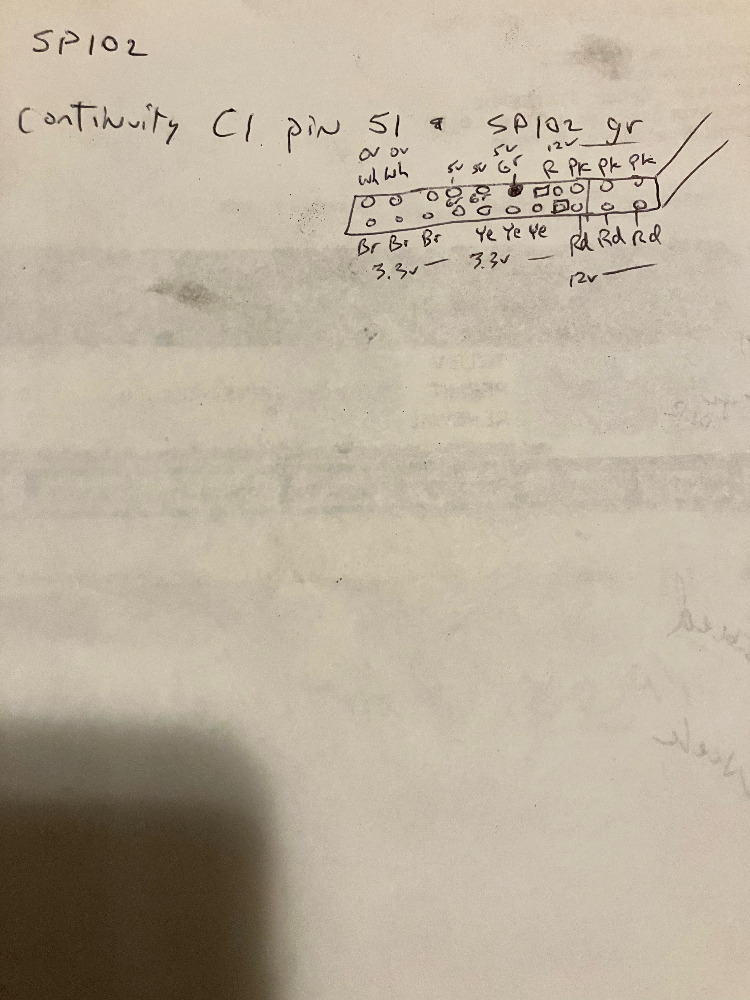 SP102
Continuity C1 pin 51 & SP102 gr
0v 0v 5v 12v
Wh Wh 5v 5v Gr R Pk Pk Pk
Gr Gr
Br Br Br Ye Ye Ye Rd Rd Rd
3.3v 3.3v 12v